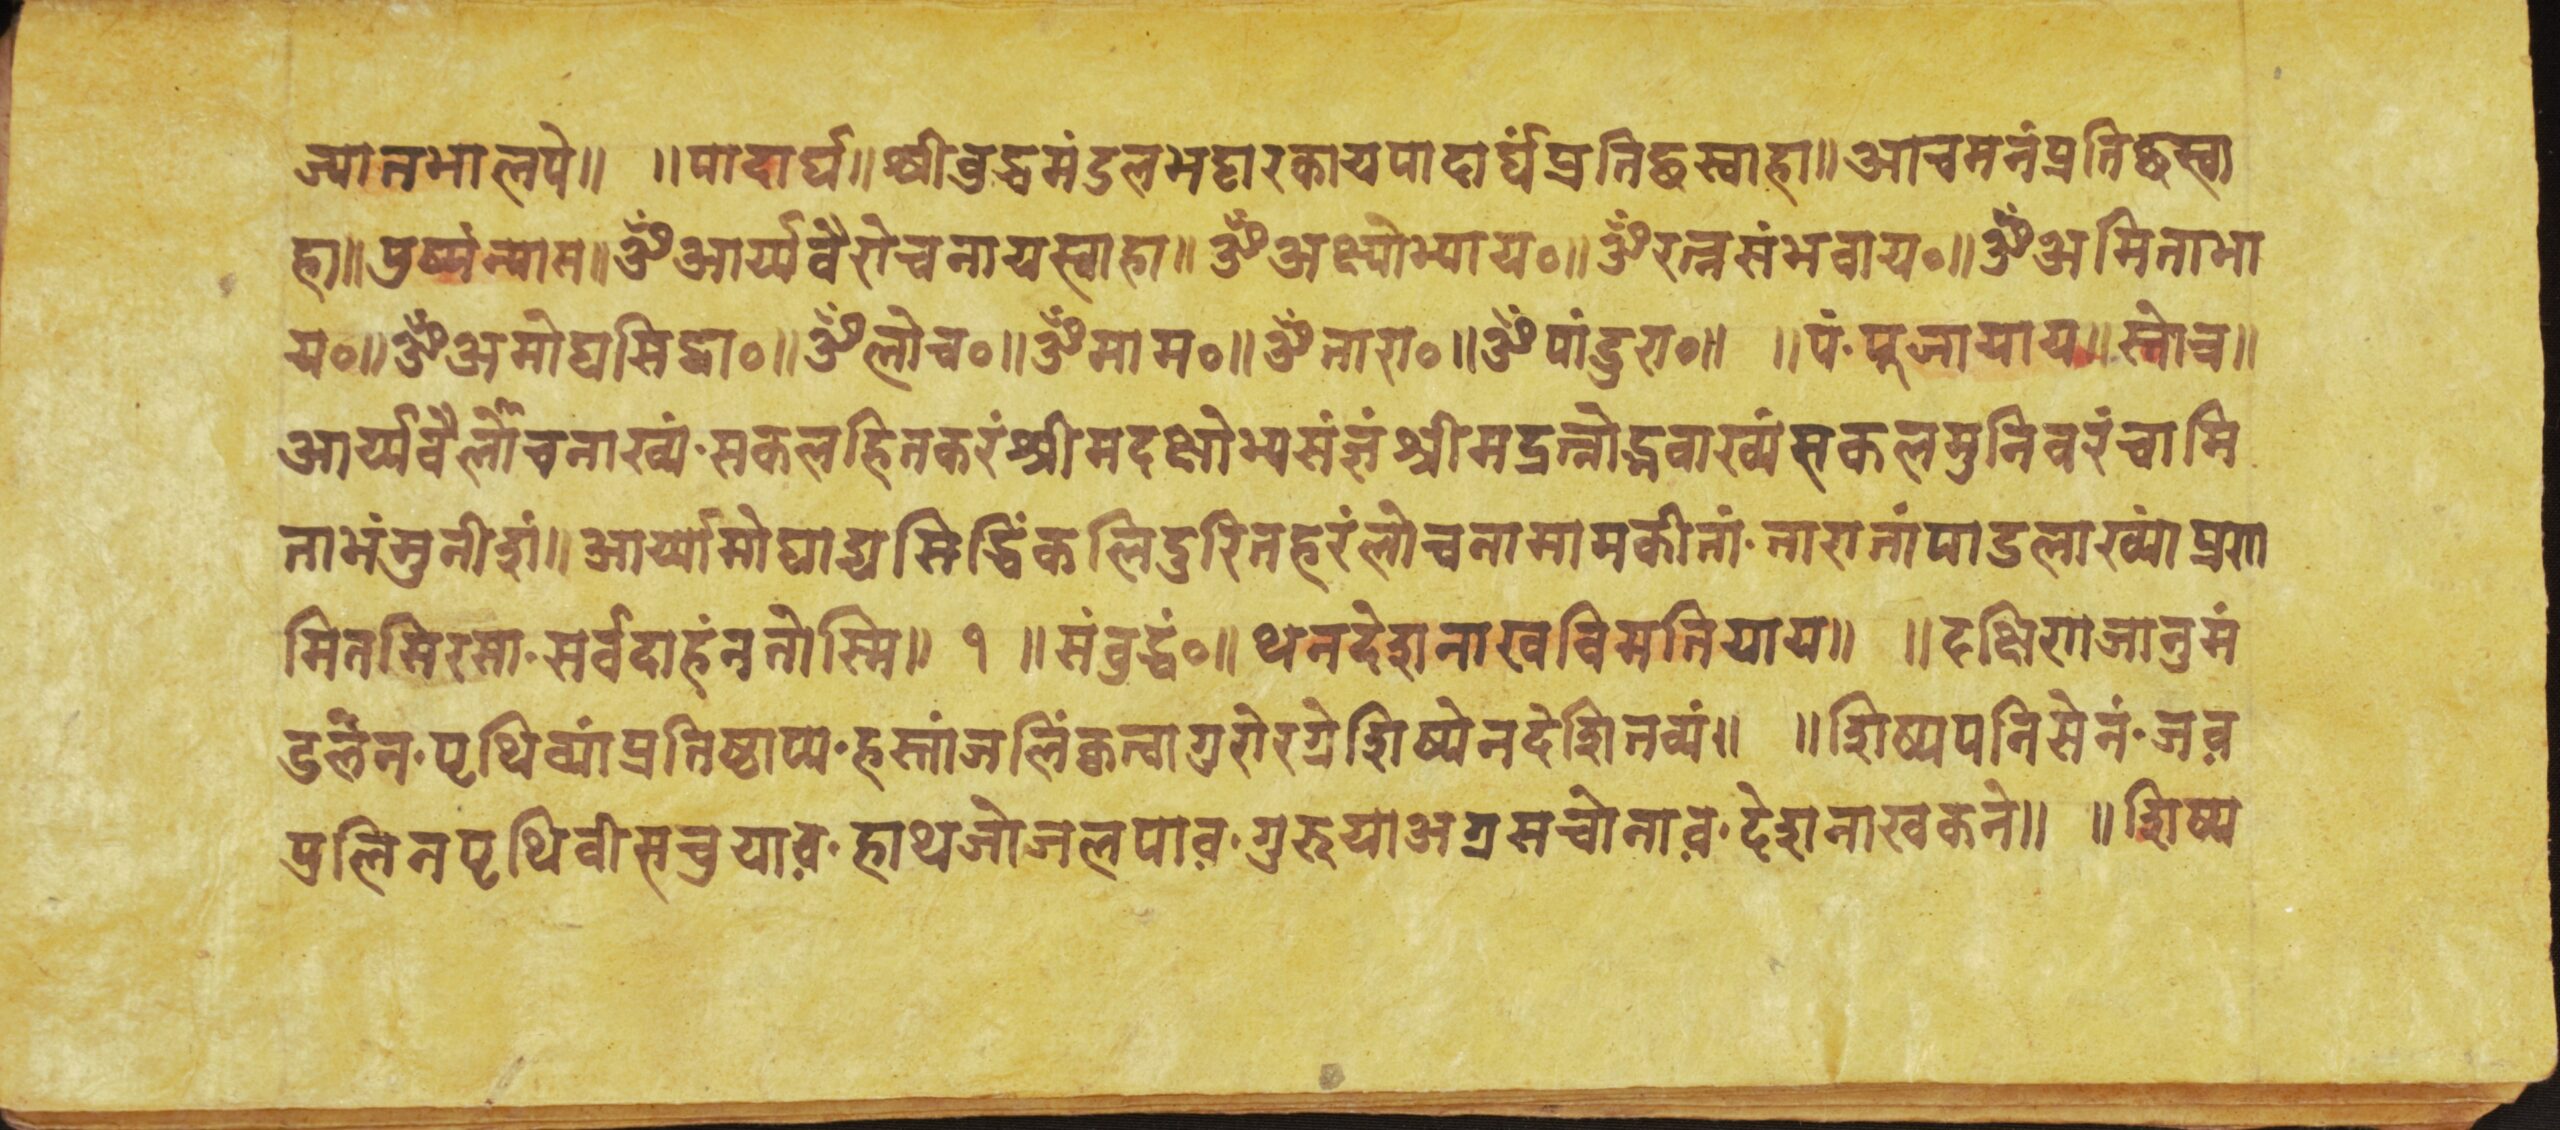 ज्यानभालपे॥ ॥पादार्घ्य॥श्रीवुद्धमंडलभट्टारकाययपादार्घ्यंप्रतिछस्वाहा॥आचमनंप्रतिछस्वा
हा॥पुष्पंन्यास॥ॐआर्य्यवैरोचनायस्वाहा॥ॐअक्ष्योभ्याय०॥ॐरत्नसंभवाय०॥ॐअमिताभा
य०॥ॐअमोघसिद्धा०॥ॐलोच०॥ॐमाम०॥ॐतारा०॥ॐपांडुरा०॥ ॥पं·पूजायाय॥स्तोत्र॥
आर्य्यवैर्लोचनाख्यं·सकलहितकरंश्रीमदक्षोभ्यसंज्ञंश्रीमद्रत्नोद्भवाख्यंसकलमुनिवरंचामि
ताभंमुनीशं॥आर्य्यामोघाद्यसिद्धिंकलिदुरितहरंलोचनामामकीनां·तारानांपाडलाख्यांप्रणा
मितसिरसा·सर्वदाहंनतोस्मि॥ १ ॥संवुद्धं०॥थनदेशनाखविमतियाय॥ ॥दक्षिणाजानुमं
डलेन·पृथिव्यांप्रतिष्ठाप्य·हस्तांजलिंकृत्वागुरोरग्रेशिष्येनदेशितव्यं॥ ॥शिष्यपनिसेनं·जव़
पुलिनपृथिवीसचुयाव़·हाथजोजलपाव़·गुरुयाअग्रसचोनाव़·देशनाखकने॥ ॥शिष्य